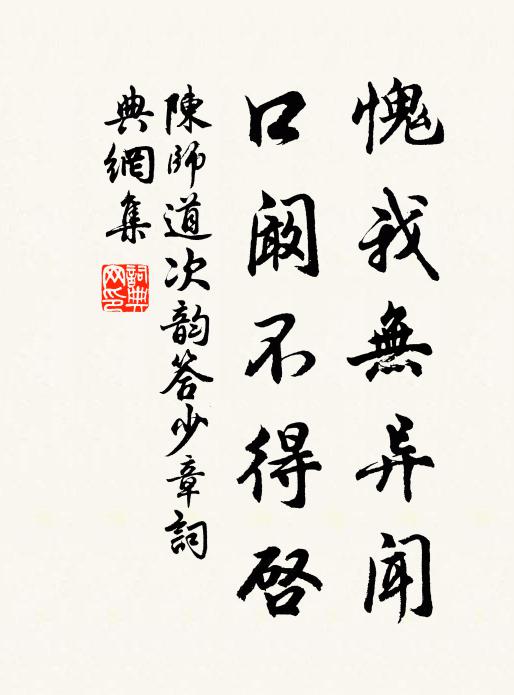 愧我無异聞
口阚不得啓
陳師道次韵答少章詞
典網集
詞典网印